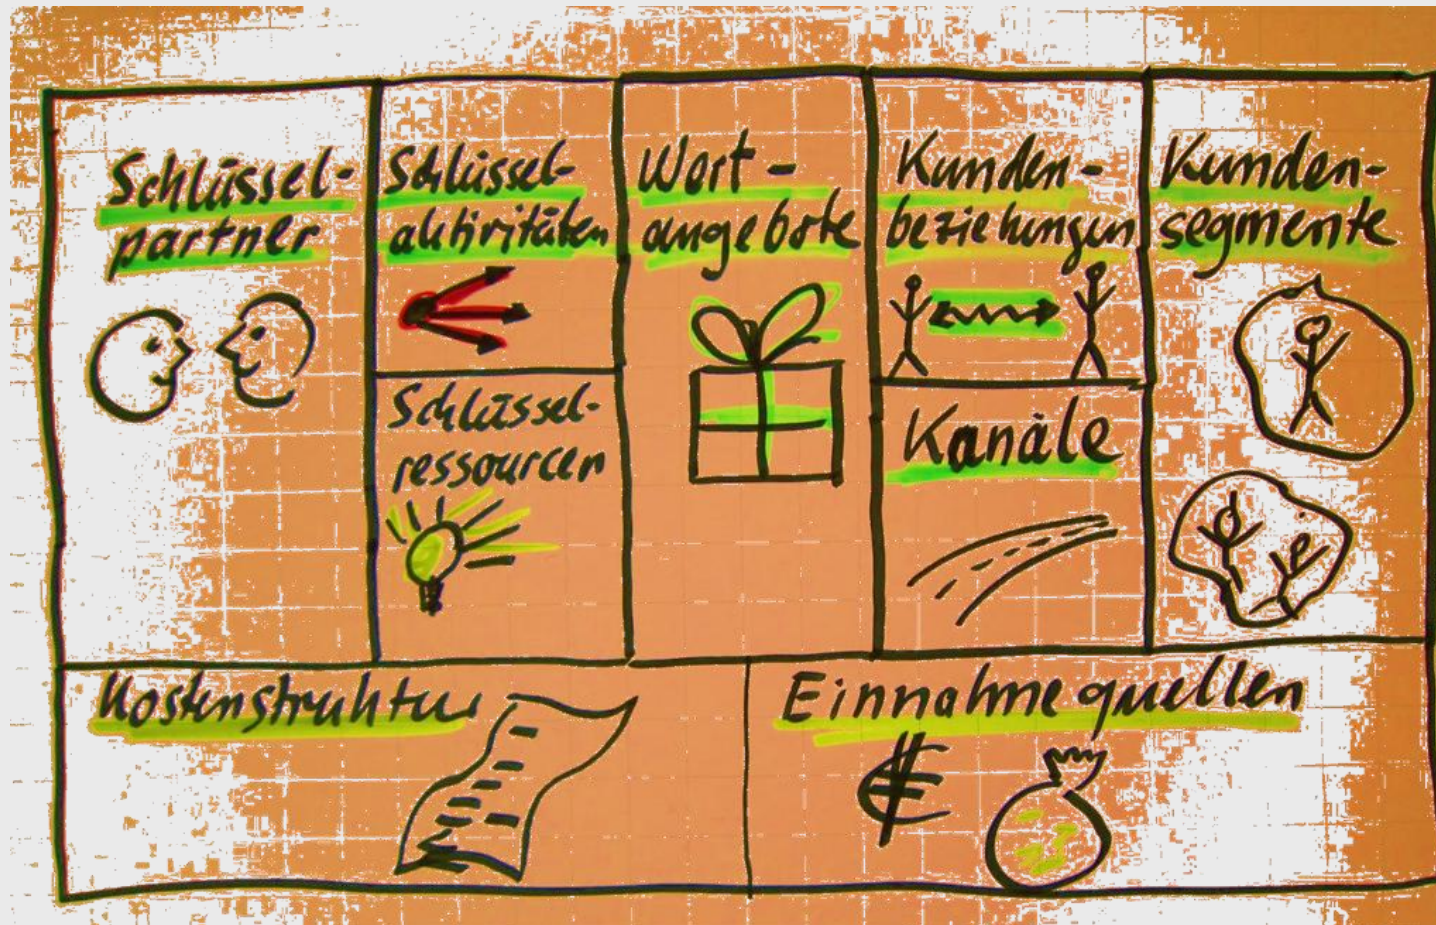 Schlüssel-
partner
Schlüssel-
aktivitäten
Schlüssel-
ressourcen
Wert-
angebote
Kunden-
beziehungen
Kanäle
Kunden-
segmente
Kostenstruktur
Einnahmequellen
€